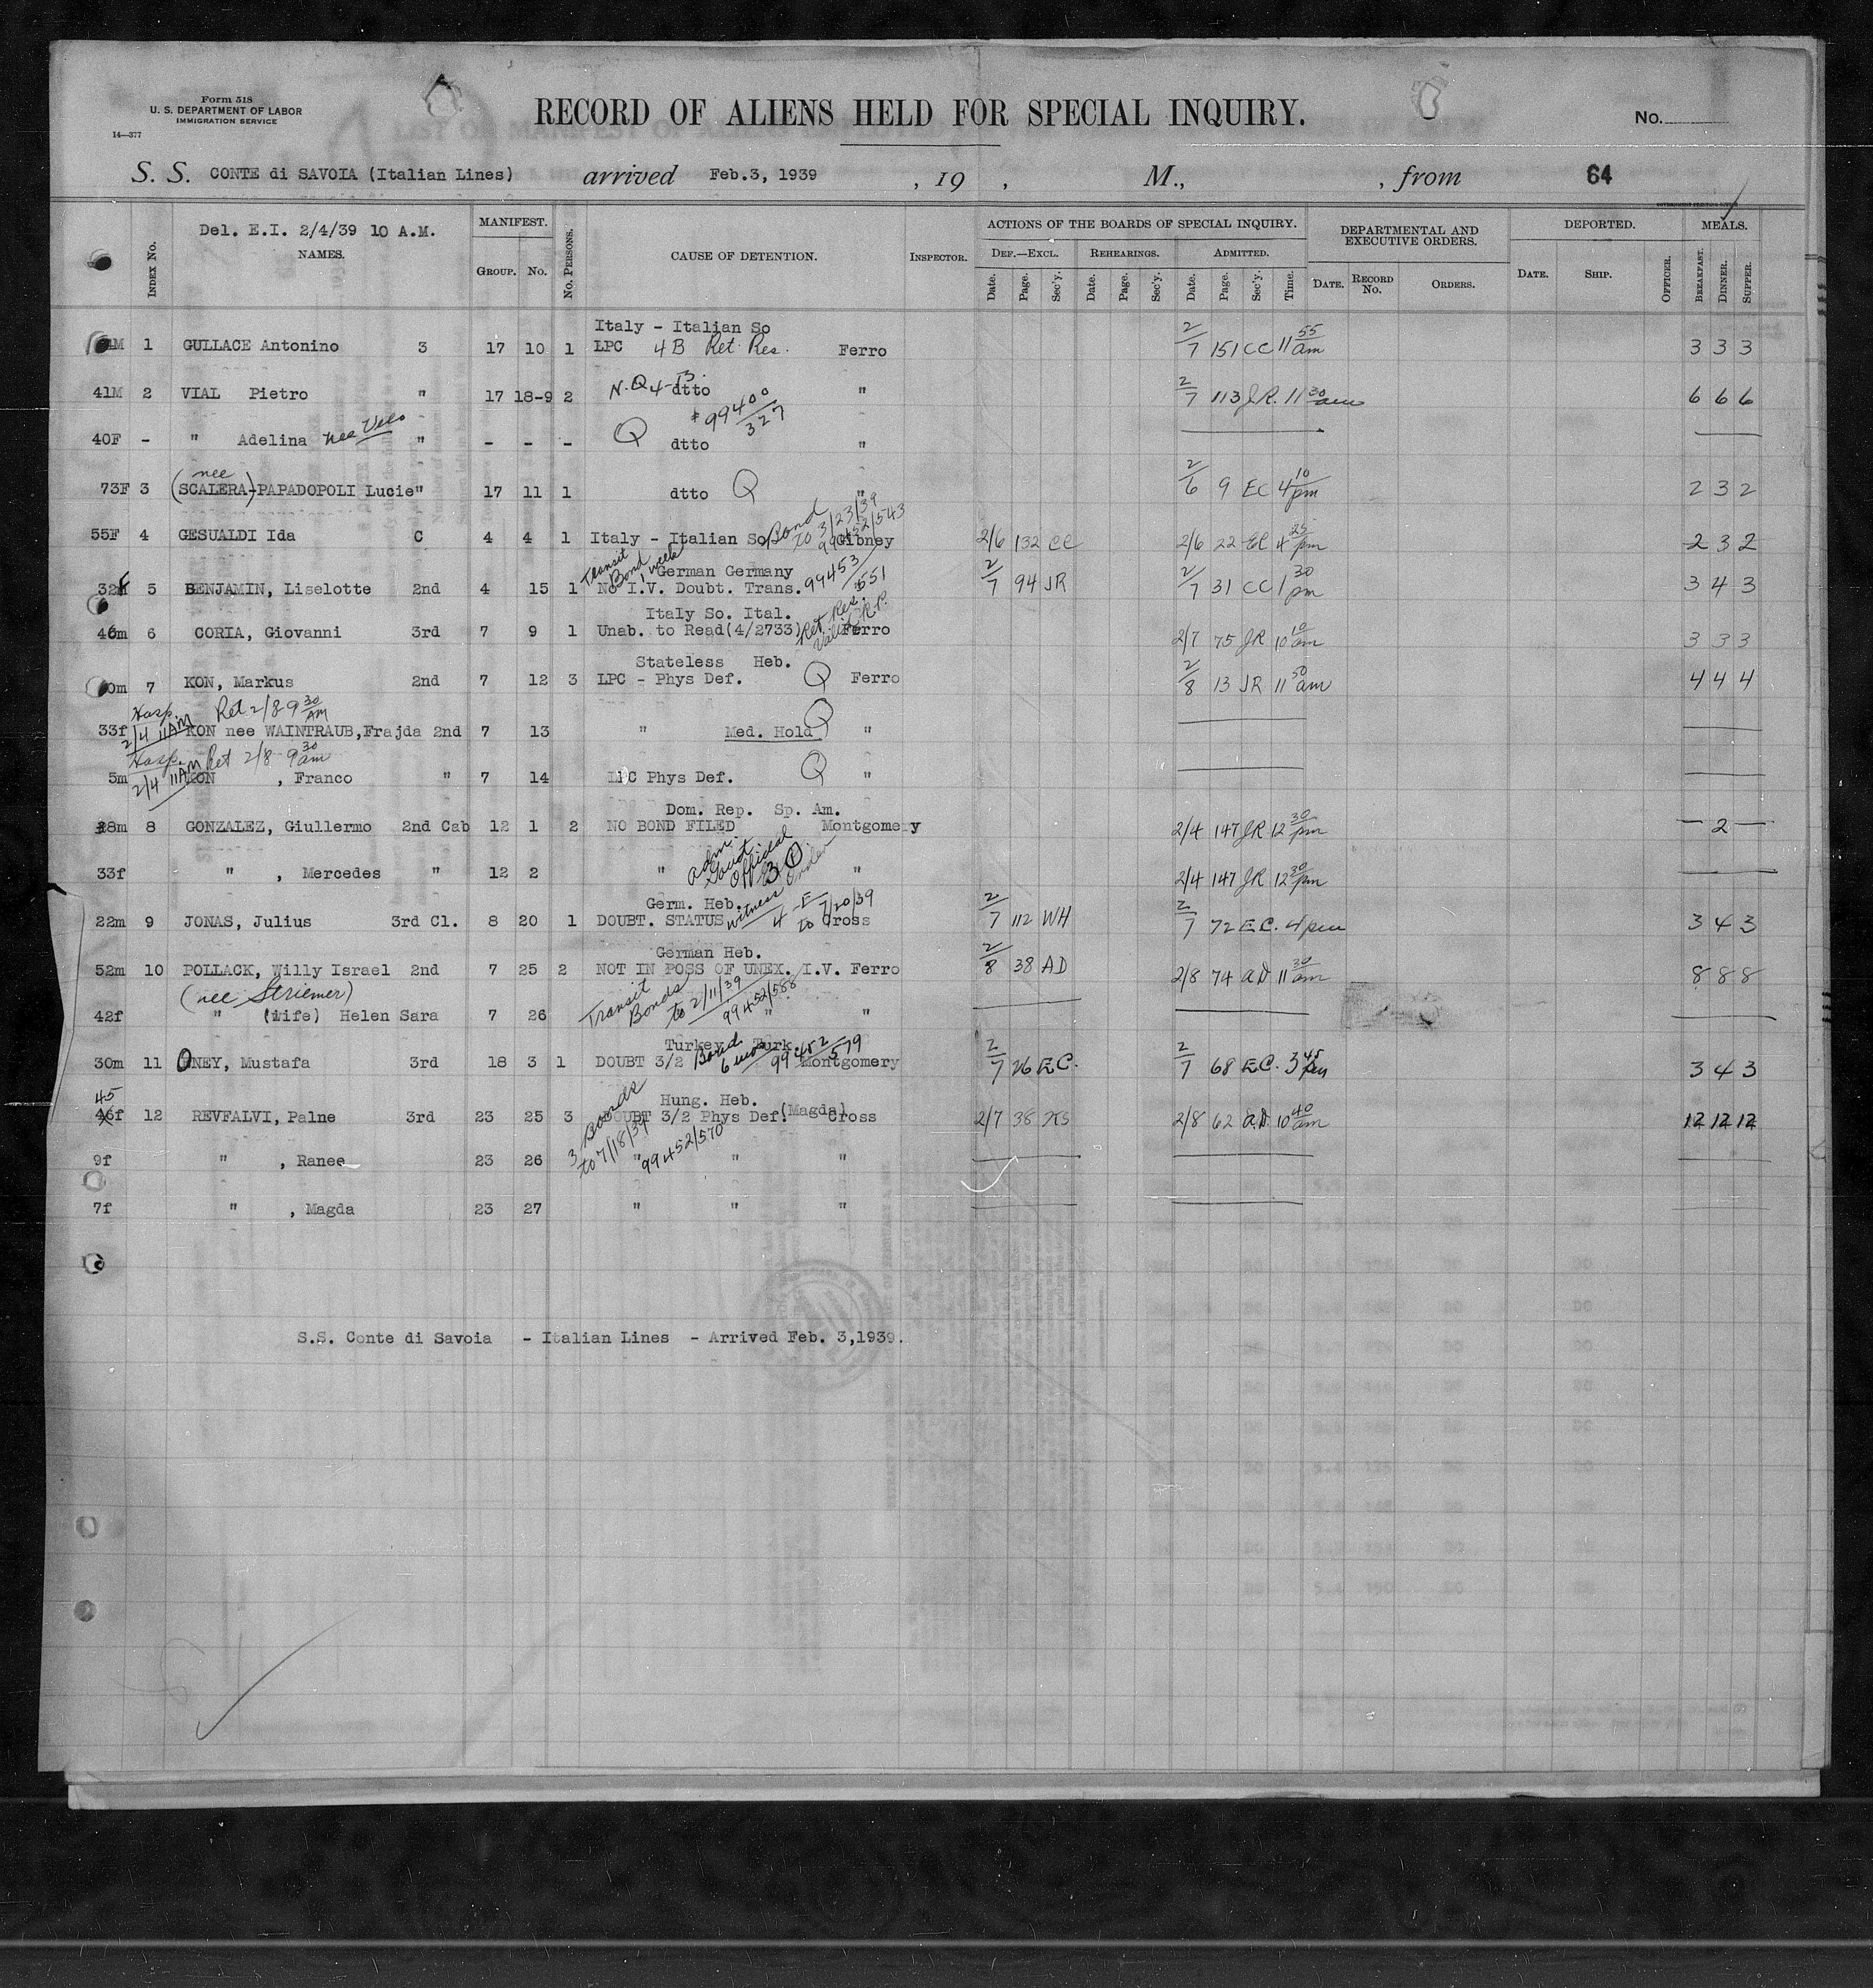 Form 518
U. S. DEPARTMENT OF LABOR
IMMIGRATION SERVICE
14—377
RECORD OF ALIENS HELD FOR SPECIAL INQUIRY.
No.
S. S. CONTE di SAVOIA (Italian Lines) arrived Feb.3, 1939 , 19 , M., , from 64
Del. E.I. 2/4/39 10 A.M.
INDEX NO. NAMES. MANIFEST. GROUP. NO. NO. PERSONS. CAUSE OF DETENTION. INSPECTOR. ACTIONS OF THE BOARDS OF SPECIAL INQUIRY. DEPARTMENTAL AND EXECUTIVE ORDERS. DEPORTED. MEALS.
DEF.—EXCL. REHEARINGS. ADMITTED.
Date. Page. Sec'y. Date. Page. Sec'y. Date. Page. Sec'y. Time. DATE. RECORD NO. ORDERS. DATE. SHIP. OFFICER. BREAKFAST. DINNER. SUPPER.
Italy - Italian So
M 1 GULLACE Antonino 3 17 10 1 LPC 4 B Ret. Res. Ferro 2/7 151 CC 11 55 am 3 3 3
41M 2 VIAL Pietro " 17 18-9 2 N.Q 4-B. dtto " 2/7 113 J.R. 11 30 am 6 6 6
# 99400/327
40F - " Adelina nee Velo " - - - Q dtto "
nee
73F 3 (SCALERA)-PAPADOPOLI Lucie " 17 11 1 dtto Q " 2/6 9 EC 4 10 pm 2 3 2
Bond to 3/23/39 99452/543
55F 4 GESUALDI Ida C 4 4 1 Italy - Italian So Gibney 2/6 132 CC 2/6 22 EC 4 25 pm 2 3 2
Transit Bond 1 week German Germany 99453/551
32F 5 BENJAMIN, Liselotte 2nd 4 15 1 No I.V. Doubt. Trans. 2/7 94 JR 2/7 31 CC 1 30 pm 3 4 3
Italy So. Ital. Ret Res. Valid R.P.
46m 6 CORIA, Giovanni 3rd 7 9 1 Unab. to Read(4/2733) Ferro 2/7 75 JR 10 10 am 3 3 3
Stateless Heb.
0m 7 KON, Markus 2nd 7 12 3 LPC - Phys Def. Q Ferro 2/8 13 JR 11 50 am 4 4 4
Hosp. 2/4 11AM Ret 2/8 9 30 AM
33f KON nee WAINTRAUB,Frajda 2nd 7 13 " Med. Hold Q "
Hosp. 2/4 11AM Ret 2/8 9 30 am
5m KON , Franco " 7 14 LPC Phys Def. Q "
Dom. Rep. Sp. Am.
28m 8 GONZALEZ, Giullermo 2nd Cab 12 1 2 NO BOND FILED Montgomery 2/4 147 JR 12 30 pm - 2 -
Adm. Govt. Official 3 (1)
33f " , Mercedes " 12 2 " " 2/4 147 JR 12 30 pm
Germ. Heb. witness 4-E to 7/20/39
22m 9 JONAS, Julius 3rd Cl. 8 20 1 DOUBT. STATUS Cross 2/7 112 WH 2/7 72 E.C. 4 pm 3 4 3
German Heb.
52m 10 POLLACK, Willy Israel 2nd 7 25 2 NOT IN POSS OF UNEX. I.V. Ferro 2/8 38 AD 2/8 74 A.D. 11 30 am 8 8 8
(nee Striemer) Transit Bonds to 2/11/39 99452/588
42f " (Wife) Helen Sara 7 26 " "
Turkey Turk. Bond 6 mos 99452/579
30m 11 ONEY, Mustafa 3rd 18 3 1 DOUBT 3/2 Montgomery 2/7 26 E.C. 2/7 68 E.C. 3 45 pm 3 4 3
45 Hung. Heb.
46f 12 REVFALVI, Palne 3rd 23 25 3 DOUBT 3/2 Phys Def. (Magda) Cross 2/7 38 2/8 62 A.D. 10 40 am 12 12 12
3 Bonds to 7/18/39 99452/570
9f " , Ranee 23 26 " " "
7f " , Magda 23 27 " " "
S.S. Conte di Savoia - Italian Lines - Arrived Feb. 3,1939.